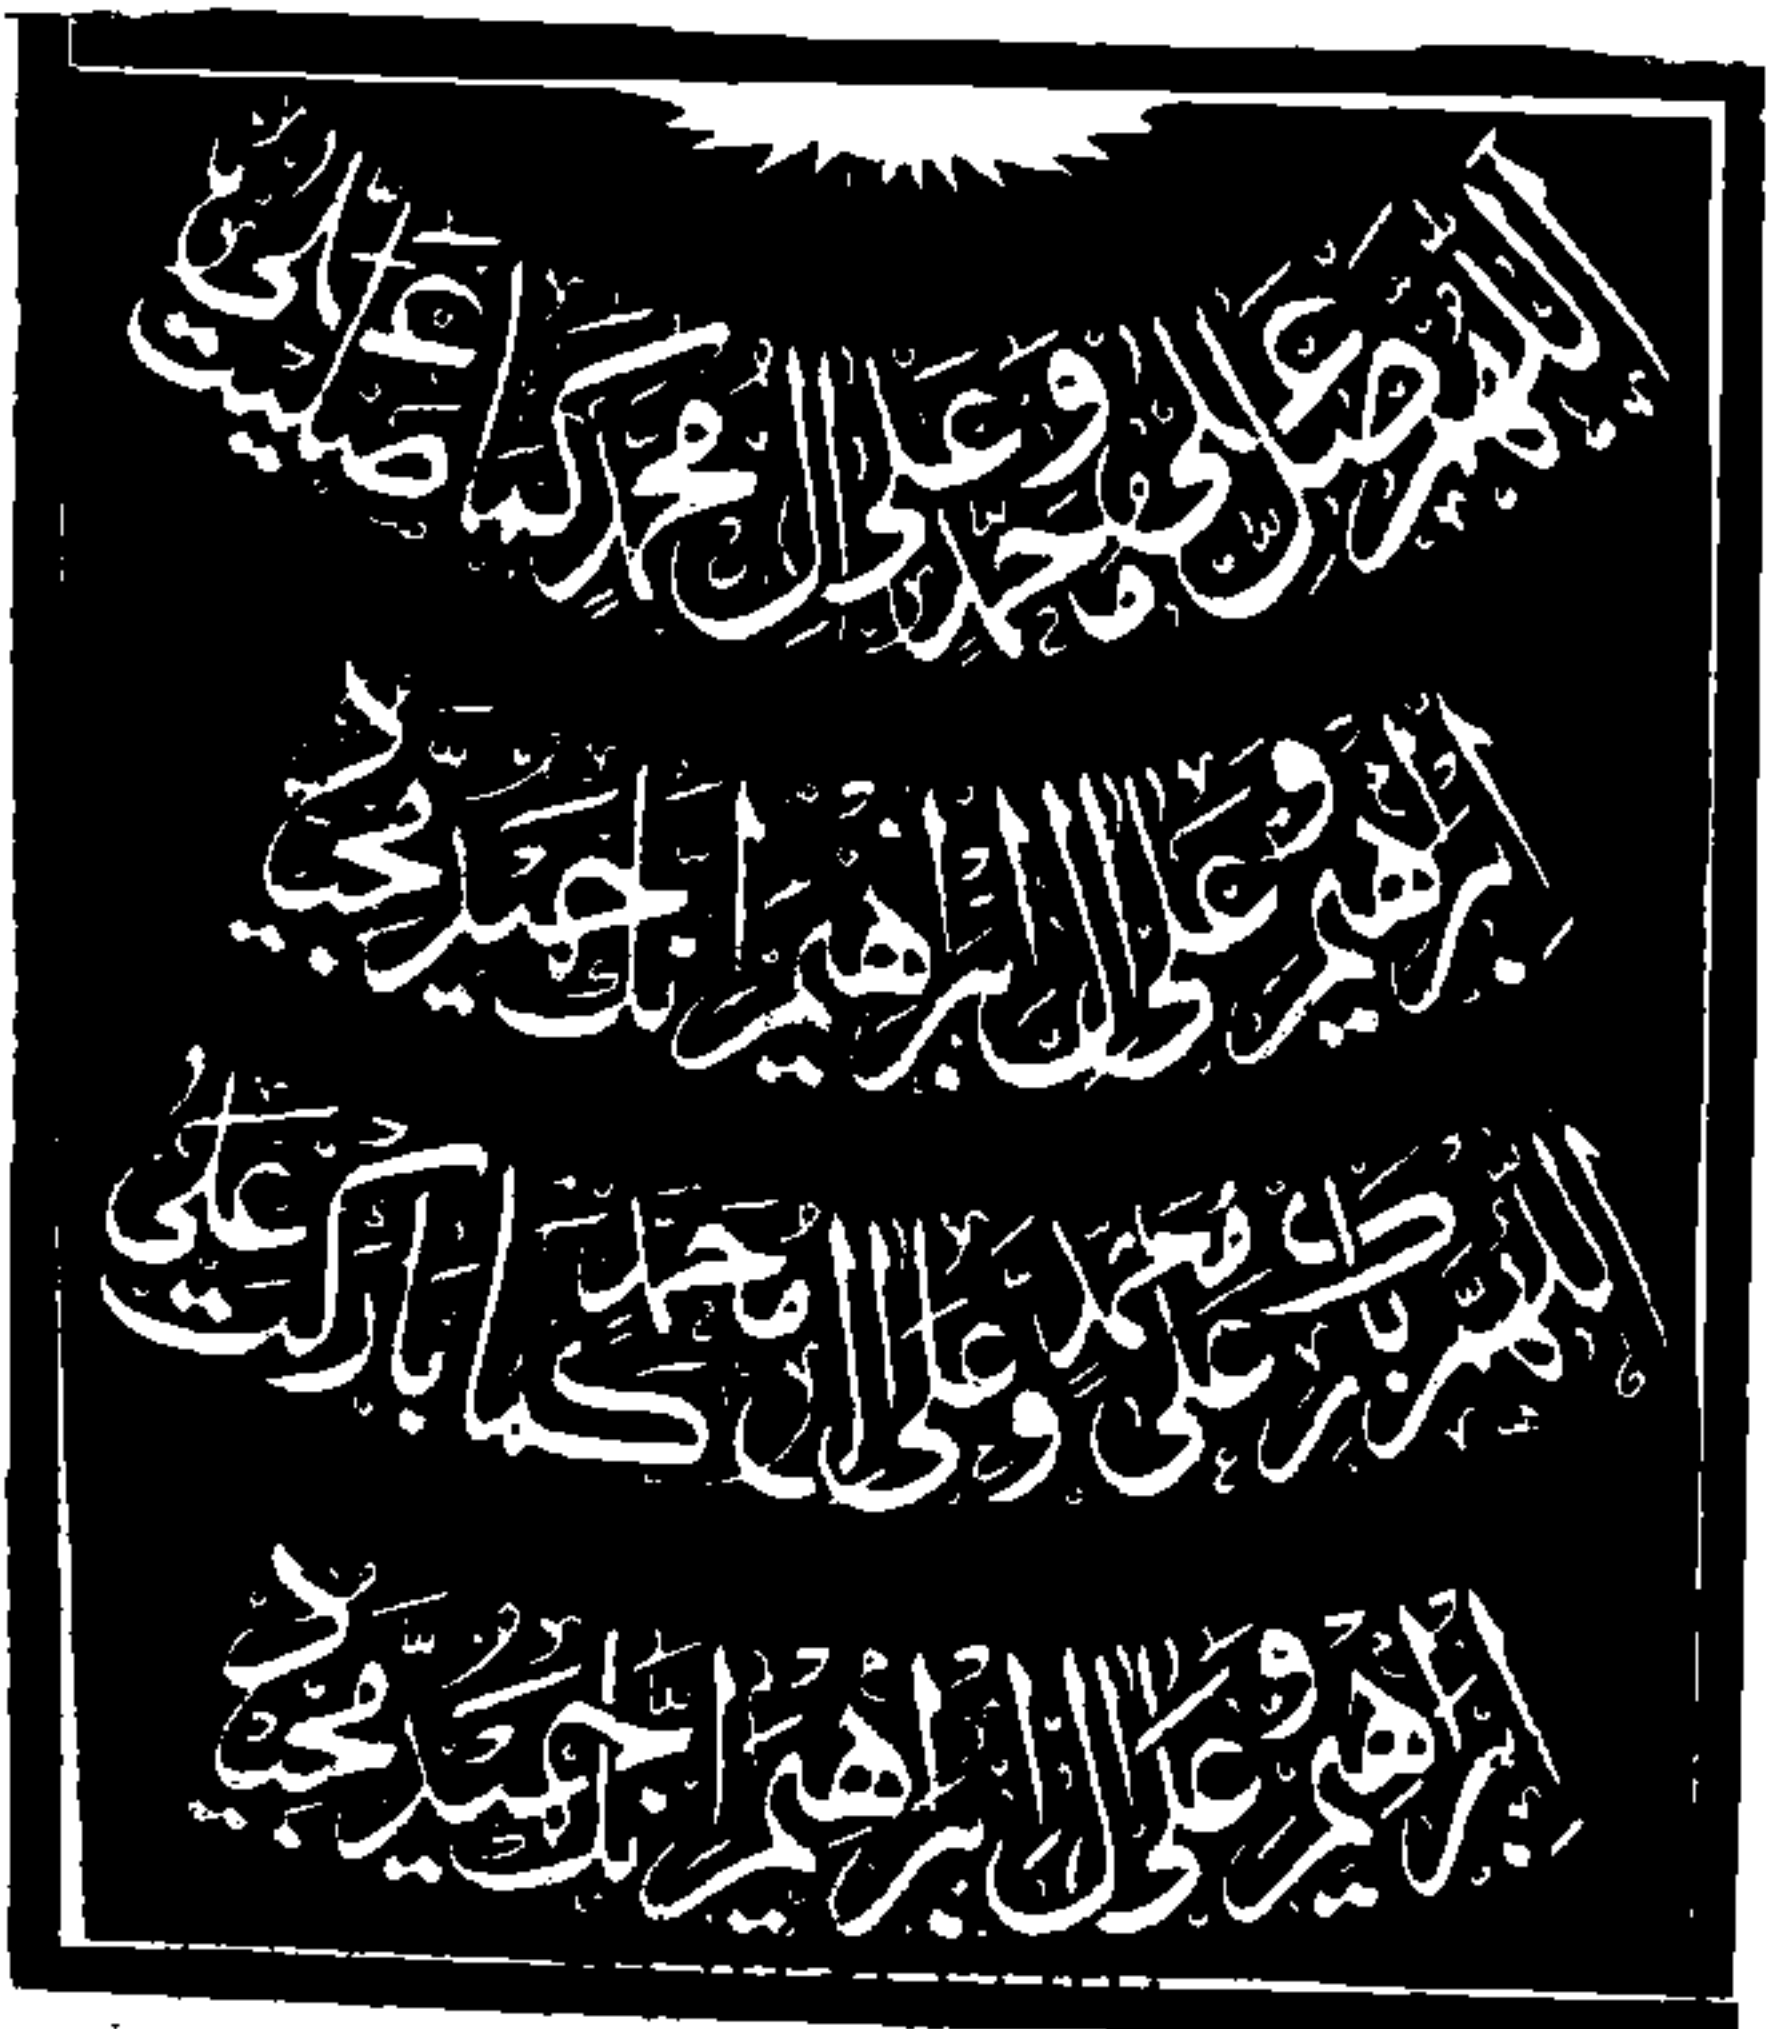 اللهم صل على محمد وعلى آل محمد كما صليت على
إبراهيم وعلى آل إبراهيم إنك حميد مجيد
اللهم بارك على محمد وعلى آل محمد كما باركت على
إبراهيم وعلى آل إبراهيم إنك حميد مجيد